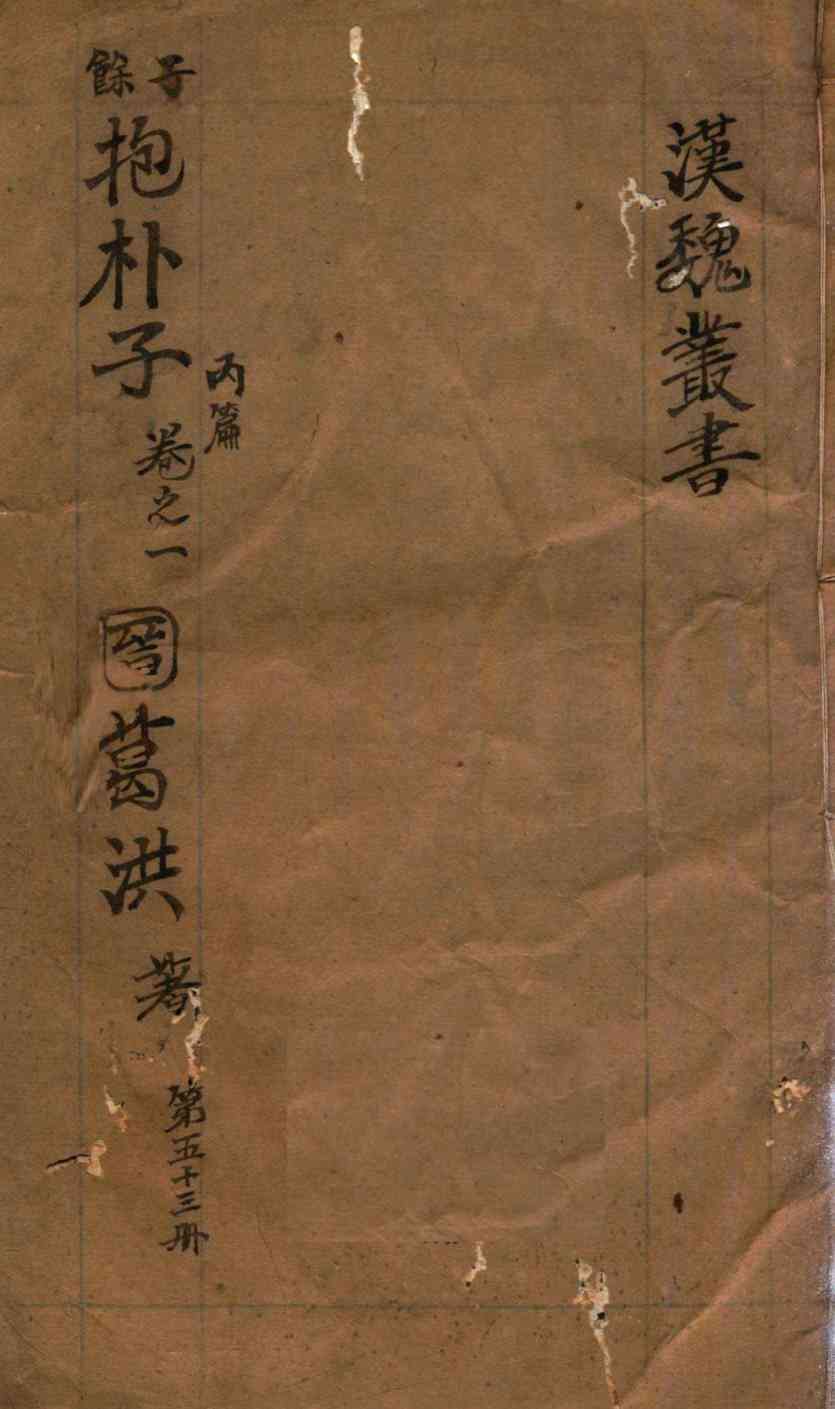 漢魏叢書
子餘
抱朴子
丙篇
卷之一
晉
葛洪
著
第五十三冊